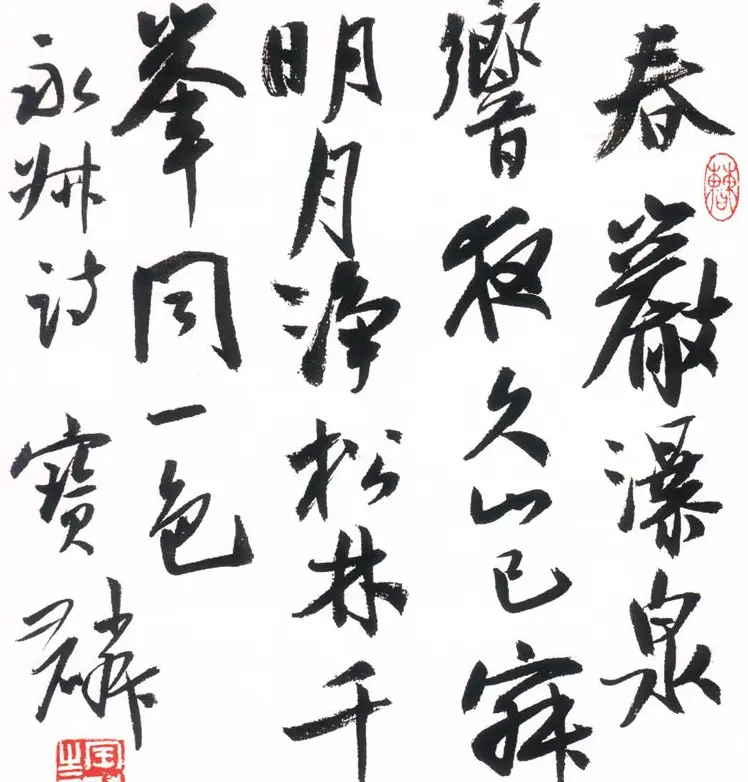 春巖瀑泉
響夜久山已寂
明月淨松林千
峯同一色
永叔诗 寶